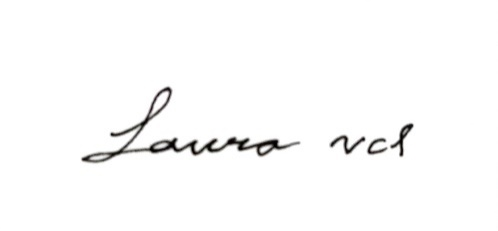 Laura vcl